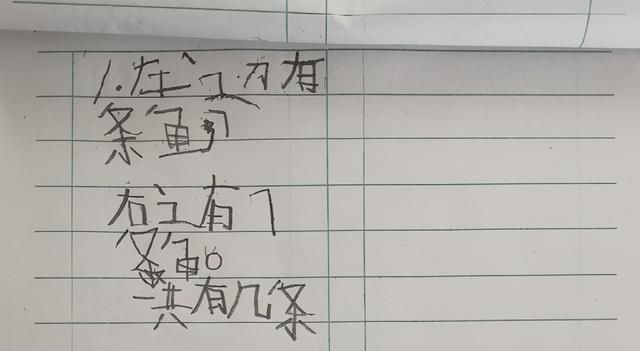 1.左边有
条鱼
右边有7
条鱼。
一共有几条